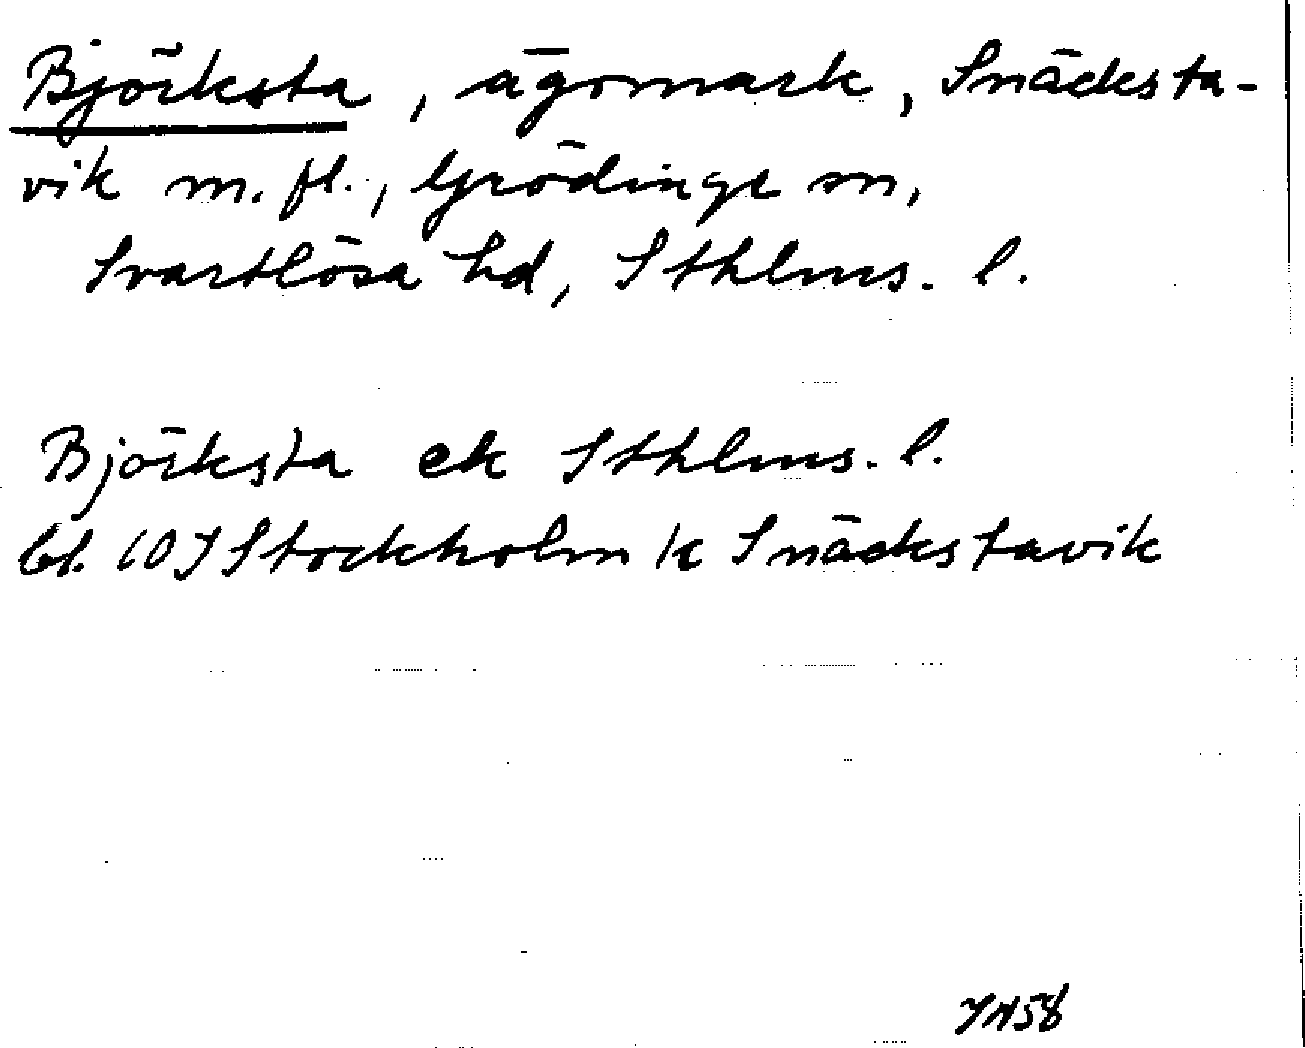 Björksta, ägomark, Snäcksta-
vik m. fl., Grödinge sn,
Svartlösa hd, Sthlms. l.
Björksta ek Sthlms. l.
bl. 10J Stockholm /c Snäckstavik